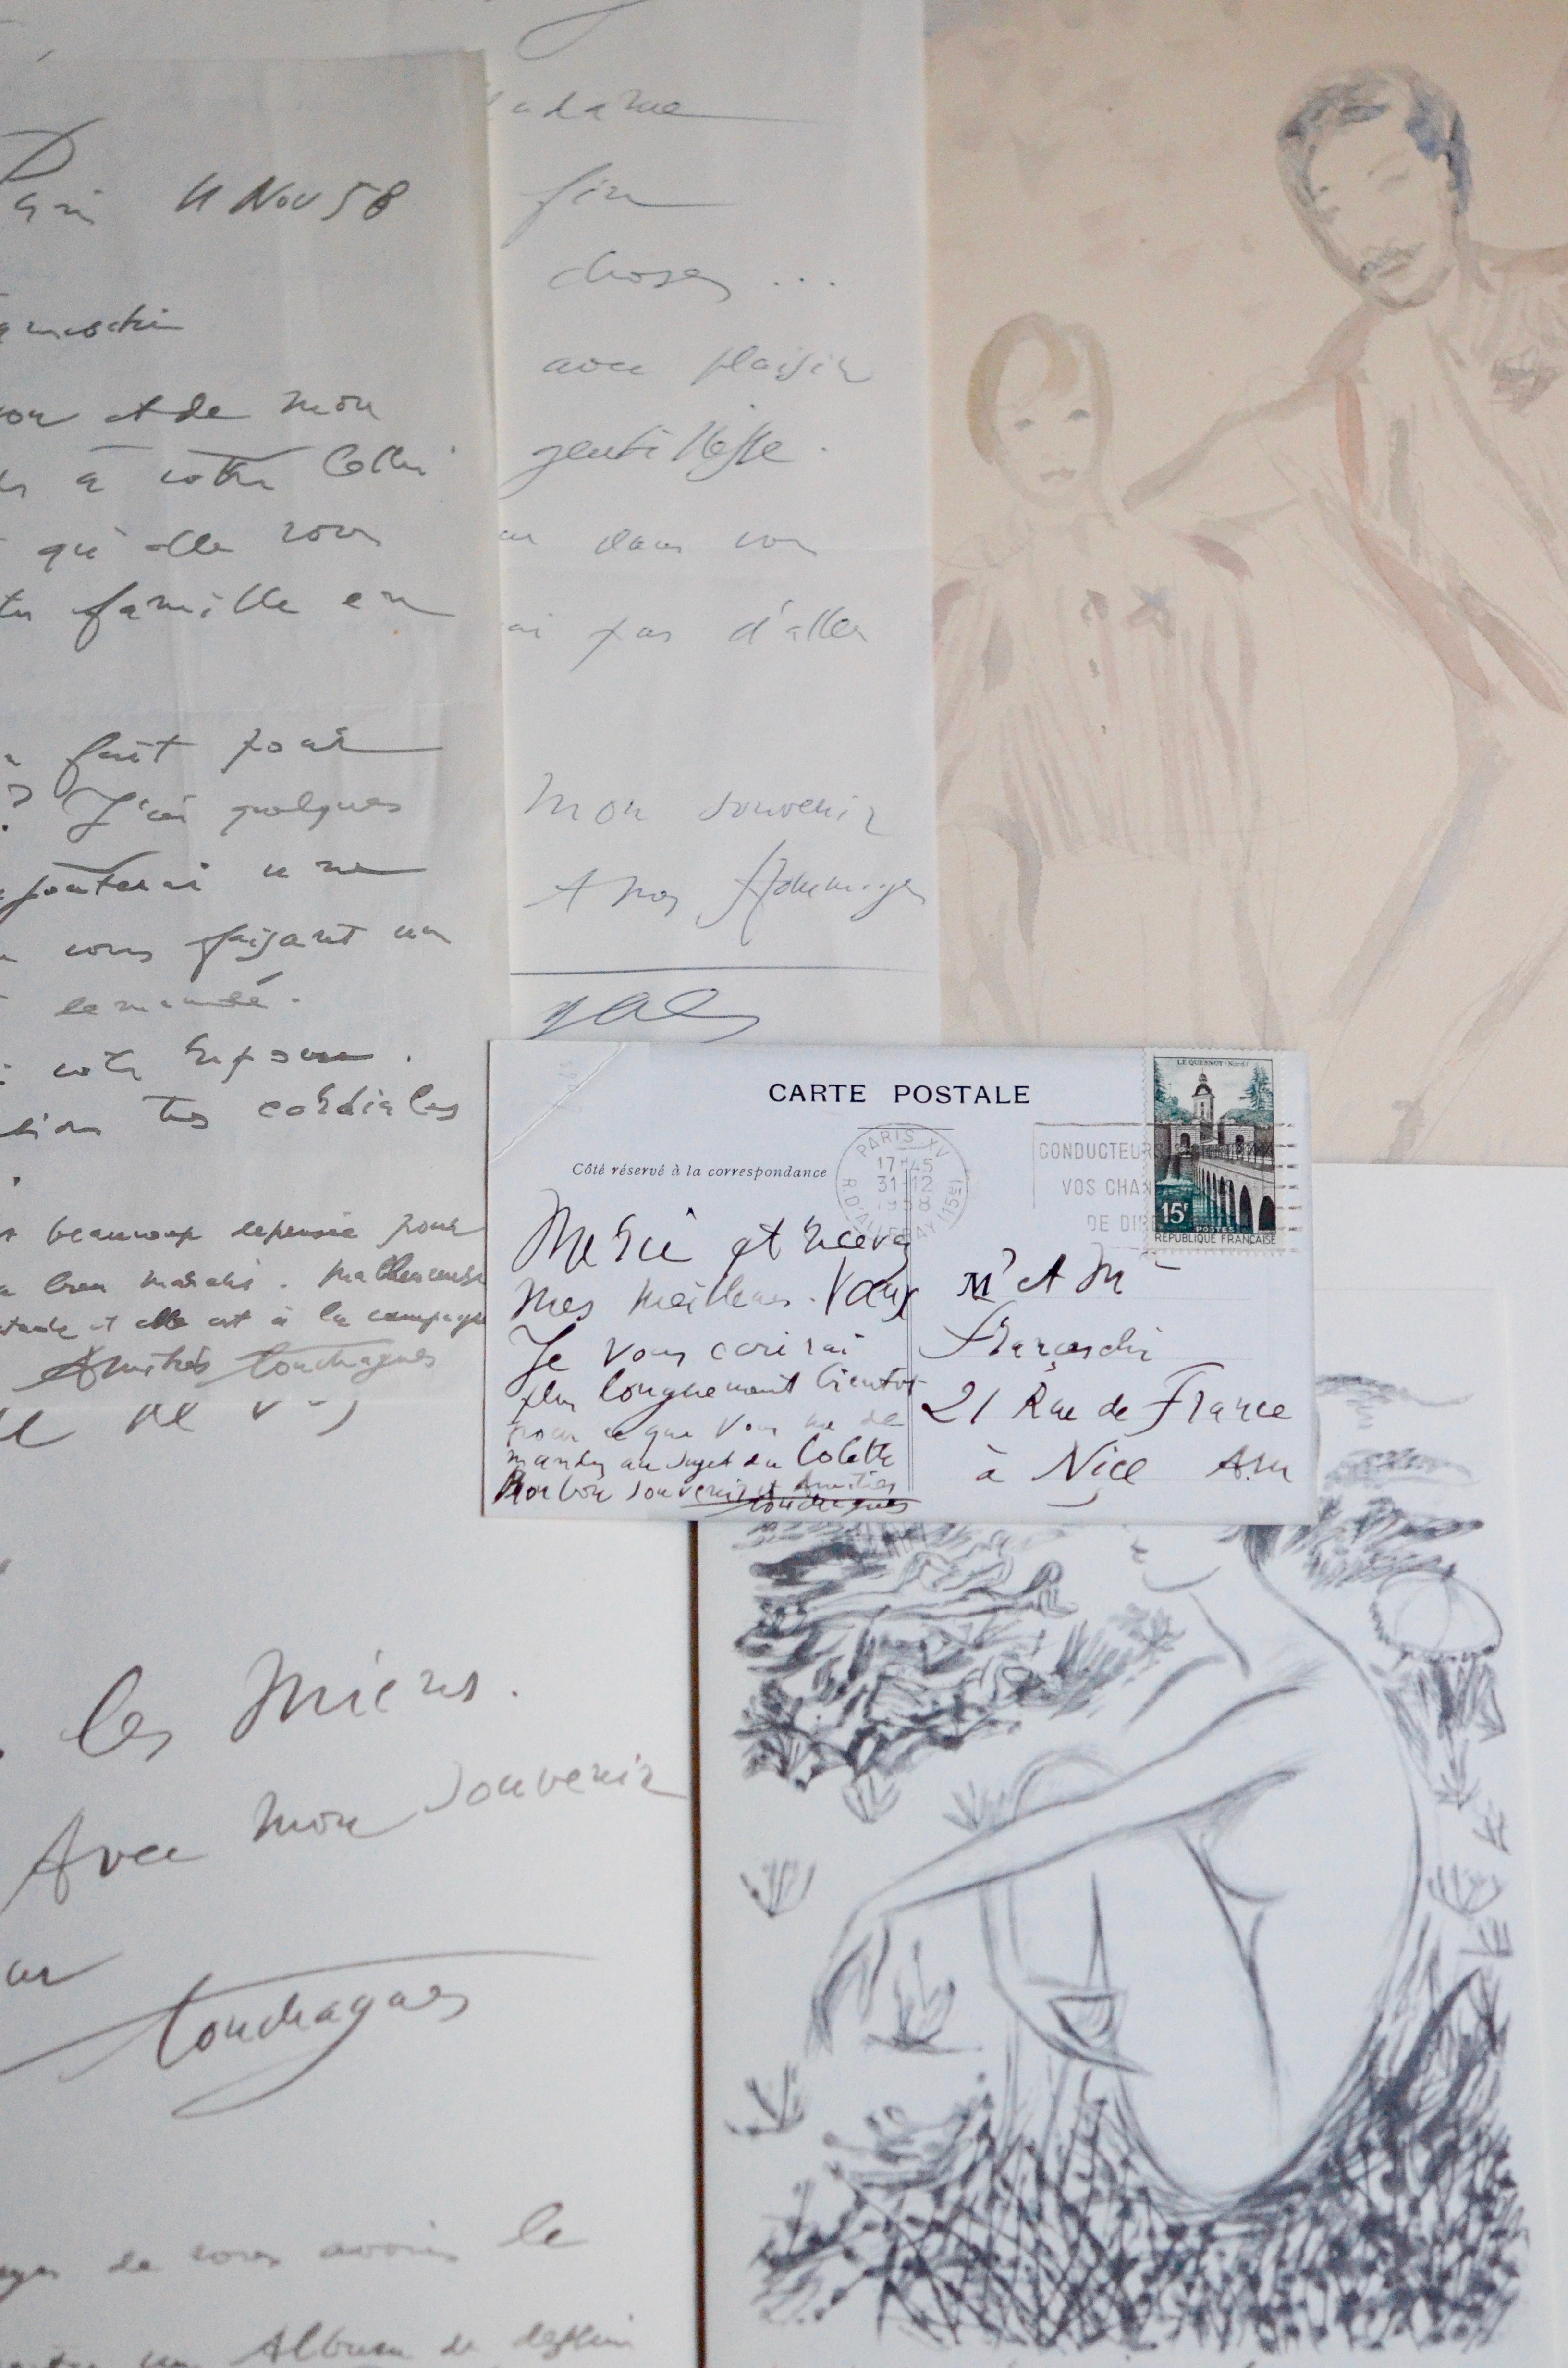 Paris 11 Nov 58
et de mon
à votre
qu'elle vous
famille en
fait pour
? J'ai quelques
ajouterai une
vous faisant un
demandé.
votre réponse.
très cordiales
beaucoup dépensée pour
bien marché. Malheureuse
et elle est à la campagne
Amitiés Touchagues
adame
fin
choses ...
avec plaisir
gentillesse.
dans vos
ai pas d'aller
Mon souvenir
et mes Hommages
CARTE POSTALE
Côté réservé à la correspondance
PARIS XV
17-45
31-12
1958
R. D'ALLERAY (15e)
CONDUCTEUR
VOS CHAN
DE DI
LE QUESNOY-Nord
15F
POSTES
REPUBLIQUE FRANÇAISE
Merci et recevez
mes meilleurs Vœux
Je vous écrirai
plus longuement bientôt
pour ce que vous me de
mandez au sujet de Colette
Mon bon souvenir et Amitiés
Touchagues
Mr et Me
21 Rue de France
à Nice A.M
les miens.
Avec mon souvenir
Touchagues
de vous avoir le
un Album de dessin